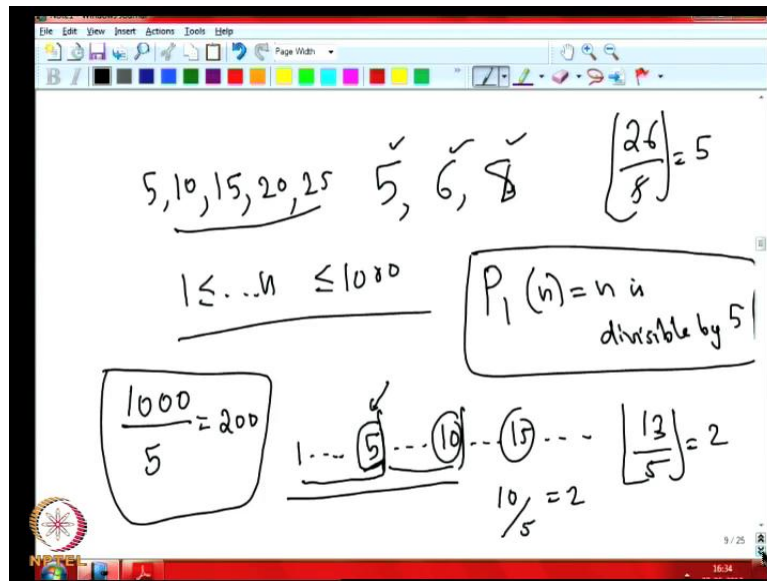 File Edit View Insert Actions Tools Help
Page Width
B I
5, 10, 15, 20, 25 5, 6, 8 ⌊26/5⌋ = 5
1 ≤ ... n ≤ 1000
P₁ (n) = n is
divisible by 5
1000/5 = 200
1 .... 5 .... 10 ... 15 .... ⌊13/5⌋ = 2
10/5 = 2
9 / 25
NPTEL
16:34